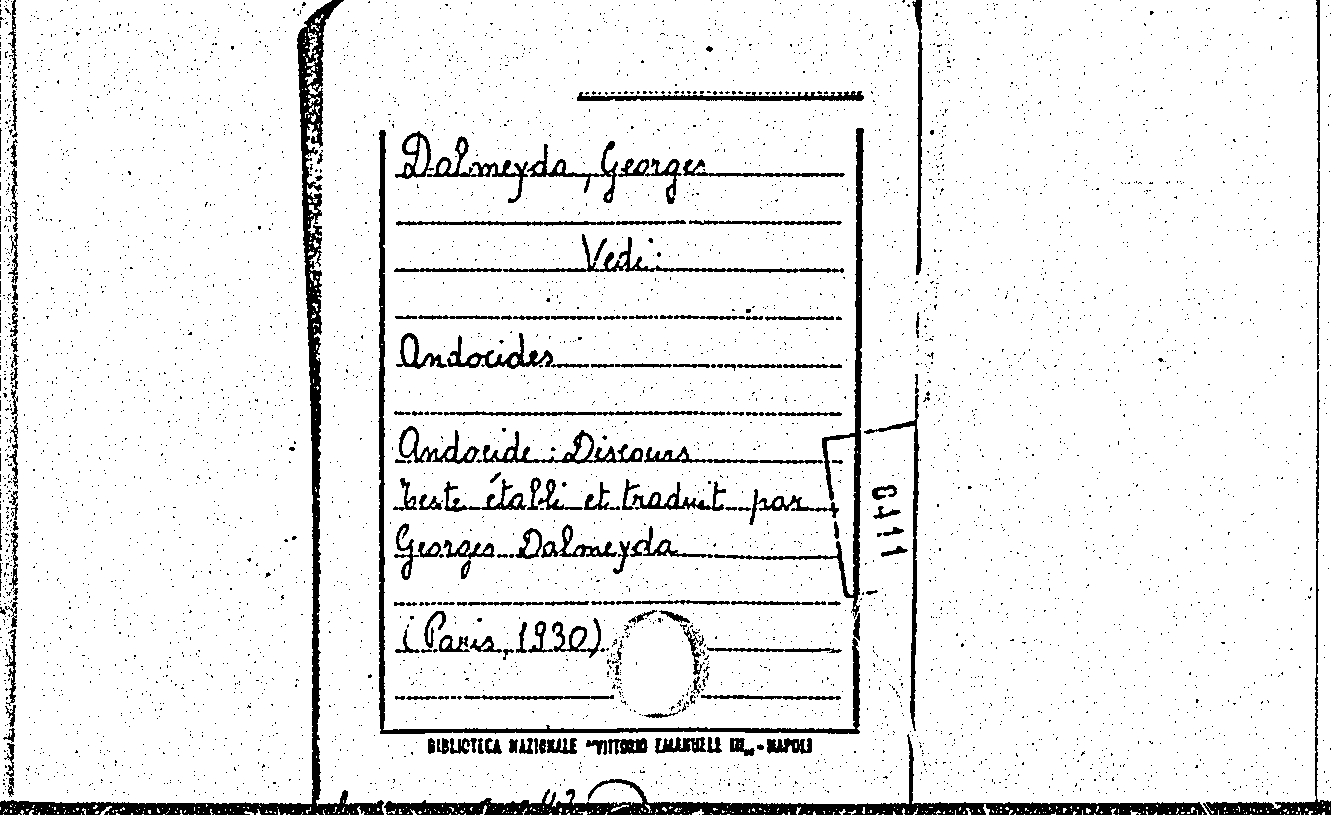 Dalmeyda, Georges
Vedi:
Andocides
Andocide: Discours
Teste établi et traduit par
Georges Dalmeyda
(Paris, 1930)
0111
BIBLIOTECA NAZIONALE "VITTORIO EMANUELE III„ - NAPOLI